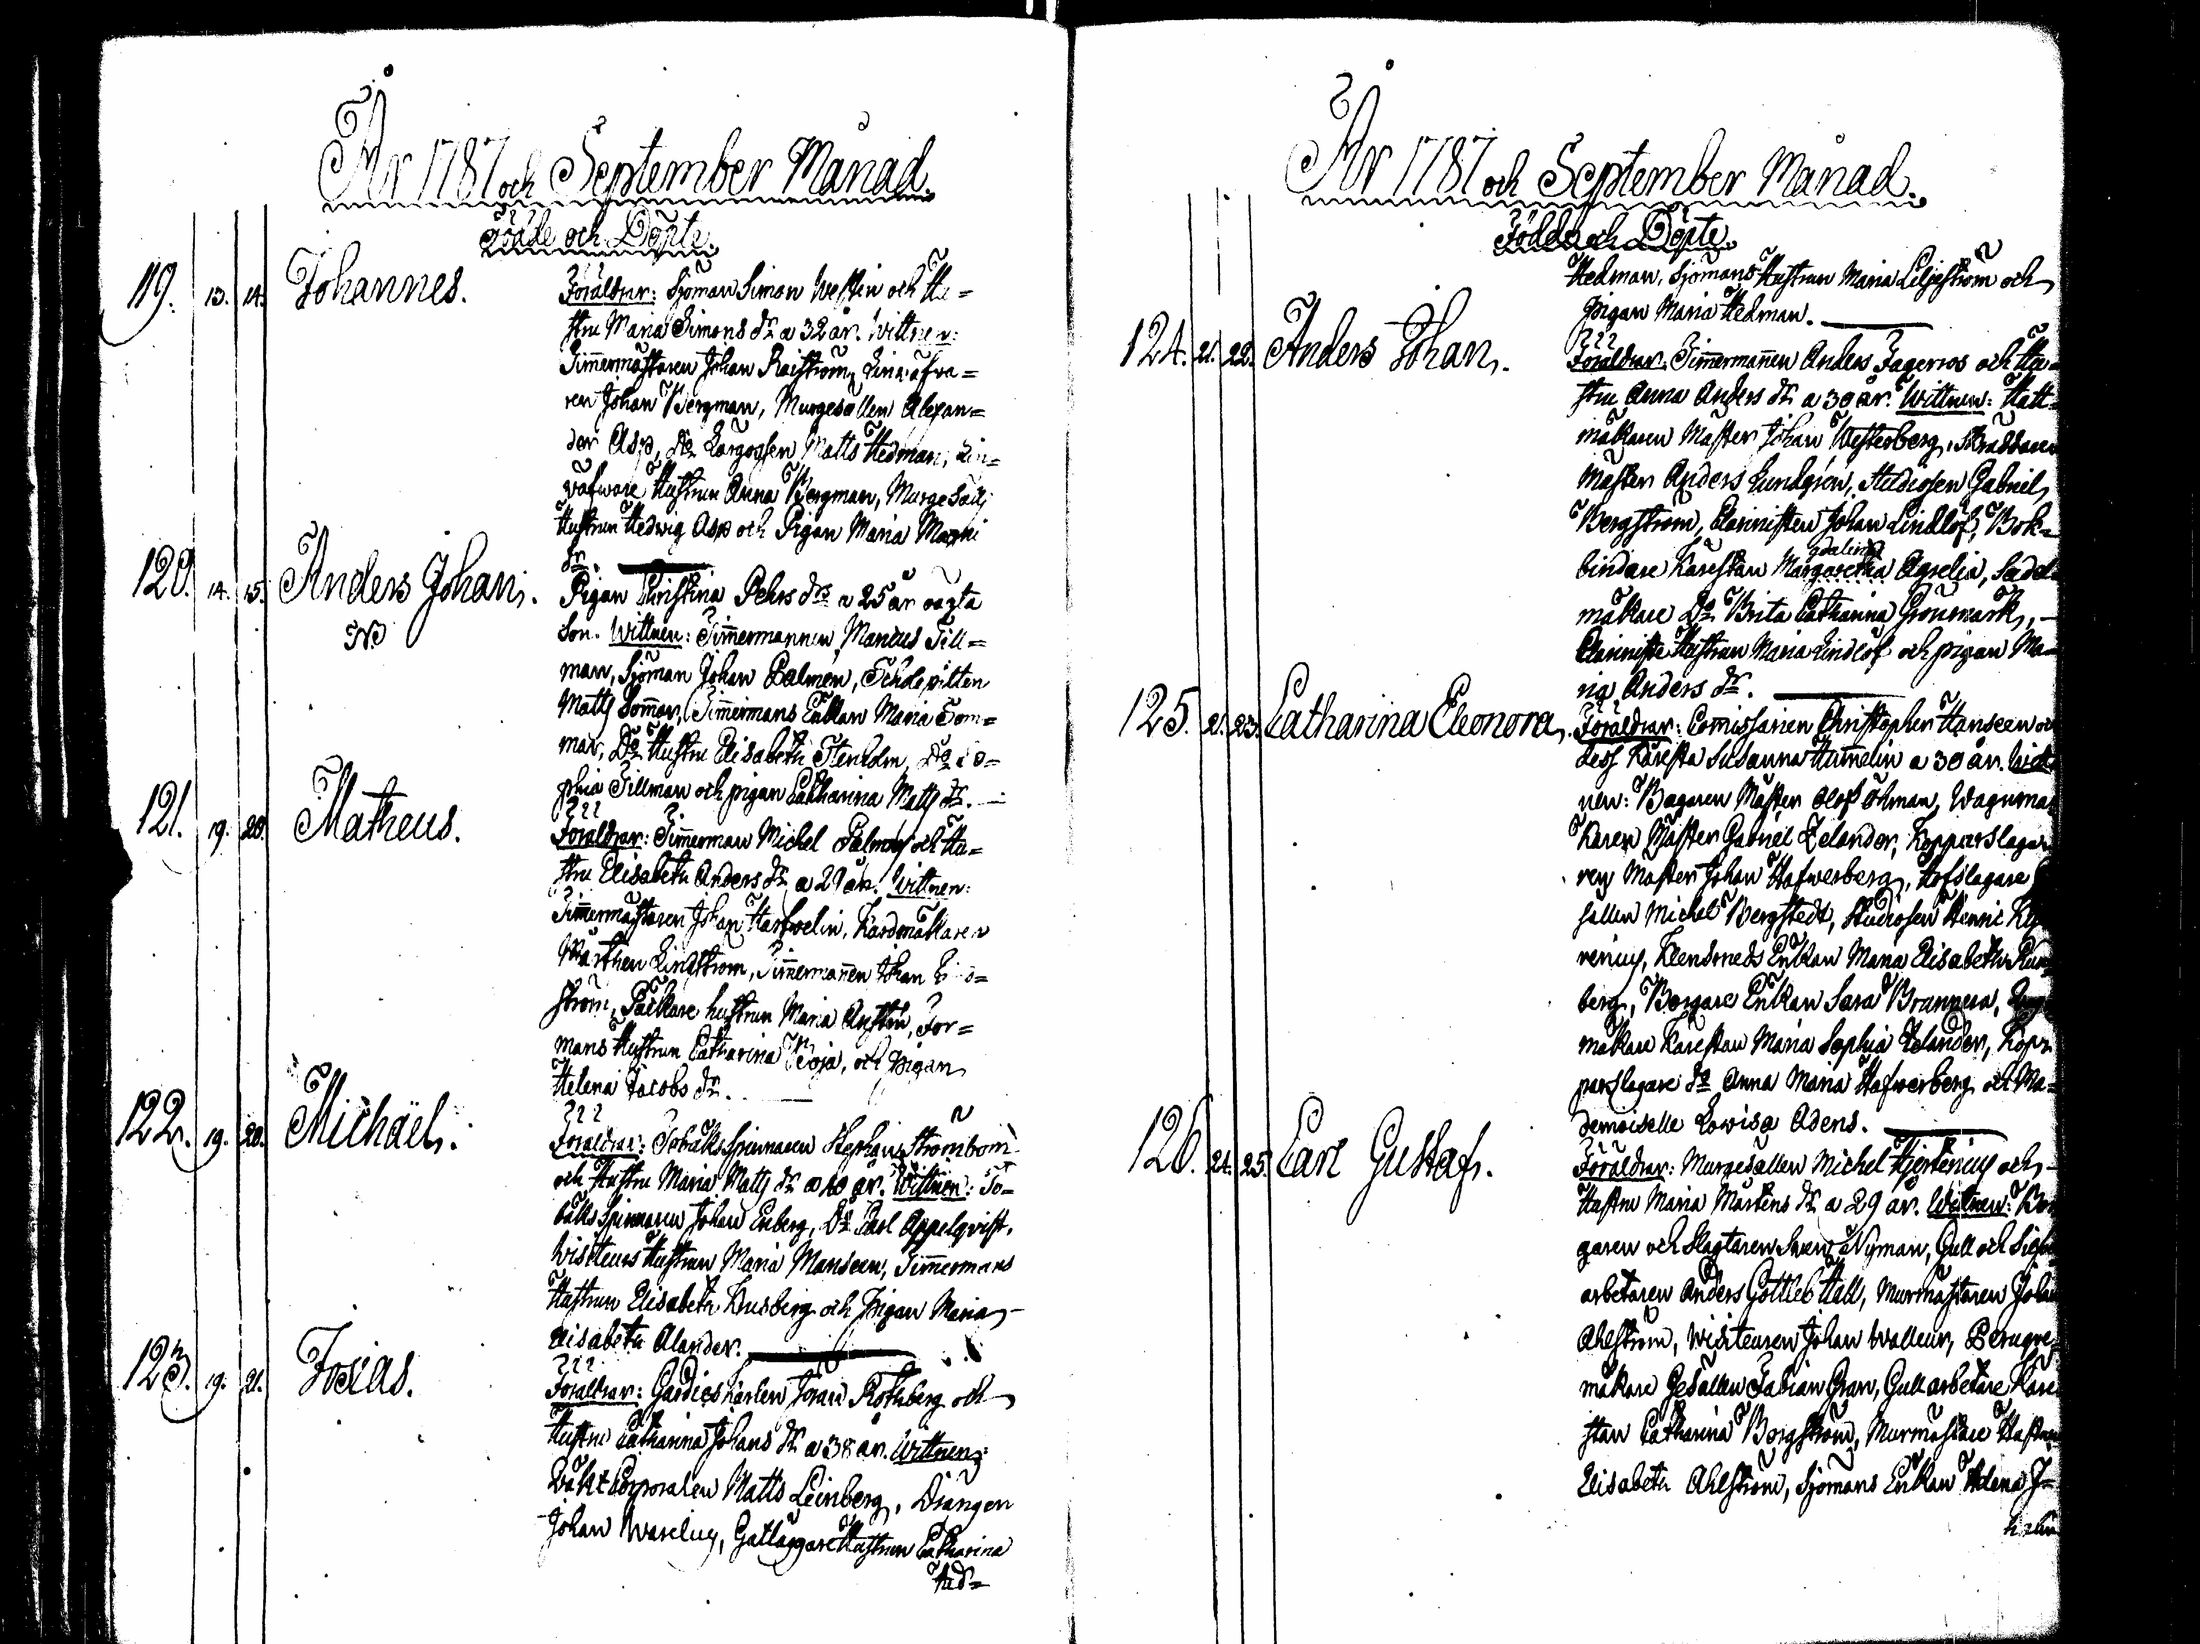 År 1787 och September Månad.
Födde och Döpte.
119. 13. 14. Johannes. Föräldrar: Sjöman Simon Westin och Hu=
stru Maria Simons dr a 32 år. Wittnen:
Timmermästaren Johan Raström, Linwäfwa=
ren Johan Bergman, Murgesällen Alexan=
der Asp, Matts Hedman, Lin=
wäfware Hustrun Anna Bergman, Murgesäll
Hustrun Hedwig Asp och Pigan Maria
dr.
120. 14. 15. Anders Johan. Pigan Christina Pehrs dr a 25 år oägta
Son. Wittnen: Timmermannen Marcus Till=
man, Sjöman Johan Palmén,
Matts Sommar, Timmermans Enkan Maria Som=
mar, Do Hustru Elisabeth Stenholm, Do So=
phia Tillman och pigan Catharina Matts dr.
121. 19. 20. Matheus. Föräldrar: Timmerman Michel och Hu=
stru Elisabeth Anders dr a 29 år. Wittnen:
Timmermästaren Johan Hartwelin, Kardmakaren
Mårthen Lindström, Timmermannen Johan
ström, Packare hustrun Maria For=
mans Hustrun Catharina Boja, och pigan
Helena Jacobs dr.
122. 19. 20. Michaël. Föräldrar: Tobaksspinnaren Stephan Strömbom
och Hustru Maria Matts dr a 40 år. Wittnen: To=
baksspinnaren Johan Enberg, Do Carl Appelqvist,
Visiteurs Hustrun Maria Manseen, Timmermans
Hustrun Elisabeth Krusberg och Pigan Maria
Elisabeth Alander.
123. 19. 21. Josias. Föräldrar: Johan Rothberg och
Hustru Catharina Johans dr a 38 år. Wittnen:
Wakt Corporalen Matts Leinberg, Drängen
Johan Waselius, Gatläggare Hustrun Catharina
Hed=
År 1787 och September Månad.
Födde och Döpte.
Hedman, Sjömans Hustrun Maria Liljeström och
pigan Maria Hedman.
124. 21. 22. Anders Johan. Föräldrar: Timmermannen Anders Fagerros och Hu=
stru Anna Anders dr a 30 år. Wittnen: Hatt=
makaren Mäster Johan Westerberg, Skraddaren
Mäster Anders Lundgrén, Studiosen Gabriel
Bergström, Claristen Johan Lindlöf, Bok=
gdalina
bindare Kärestan Margaretha Agrelia, Sadel=
makare Do Brita Catharina Grönmark,
Hustrun Maria Lindlöf och pigan Ma=
ria Anders dr.
125. 21. 23. Catharina Eleonora. Föräldrar: Comissarien Christopher Hanseen och
dess Käresta Susanna Hummelin a 30 år. Witt
nen: Bagaren Mäster Olof Öhman, Wagnma
karen Mäster Gabriel Zelander, Kopparslaga
ren Mäster Johan Hafwerberg, Hofslagare
sällen Michel Bergstedt, Studiosen Henric
renius, Klensmeds Enkan Maria Elisabeth
berg, Borgare Enkan Sara Brunnera,
makare Kärestan Maria Sophia Zelander, Kop=
parslagare do Anna Maria Hafwerberg och Ma=
demoiselle Lowisa Adens.
126. 24. 25. Carl Gustaf. Föräldrar: Murgesällen Michel Hjertenius och
Hustru Maria Mårtens dr a 29 år. Wittnen: Bor
garen och Slagtaren Sven Nyman, Gull och Silfwer
arbetaren Anders Gottlieb Häll, Murmästaren Johan
Ahlström, Visiteuren Johan Walleur, Peruque=
makare Gesällen Fabian Gran, Gull arbetare Käre
stan Catharina Borgström, Murmästare Hustrun
Elisabeth Ahlström, Sjömans Enkan Helena J=